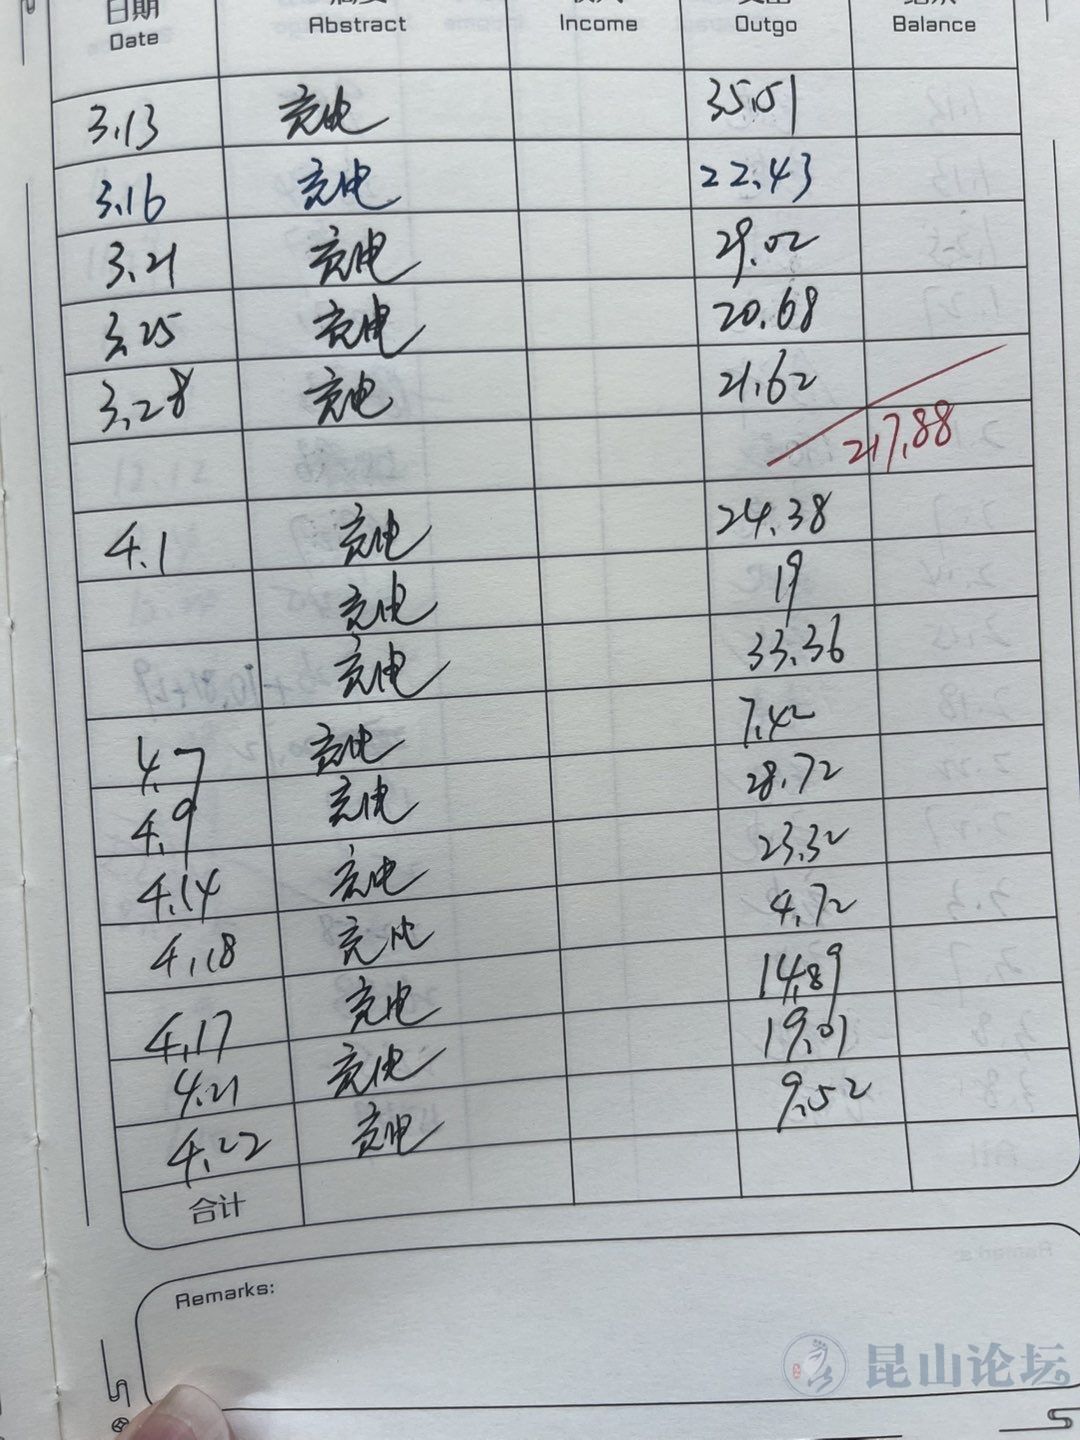 日期 摘要 收入 支出 结余
Date Abstract Income Outgo Balance
3.13 充电 35.51
3.16 充电 22.43
3.21 充电 29.02
3.25 充电 20.68
3.28 充电 21.62
217.88
4.1 充电 24.38
充电 19
充电 33.36
4.7 充电 7.42
4.9 充电 28.72
4.14 充电 23.32
4.18 充电 4.72
4.17 充电 14.89
4.21 充电 19.01
4.22 充电 9.52
合计
Remarks:
昆山论坛